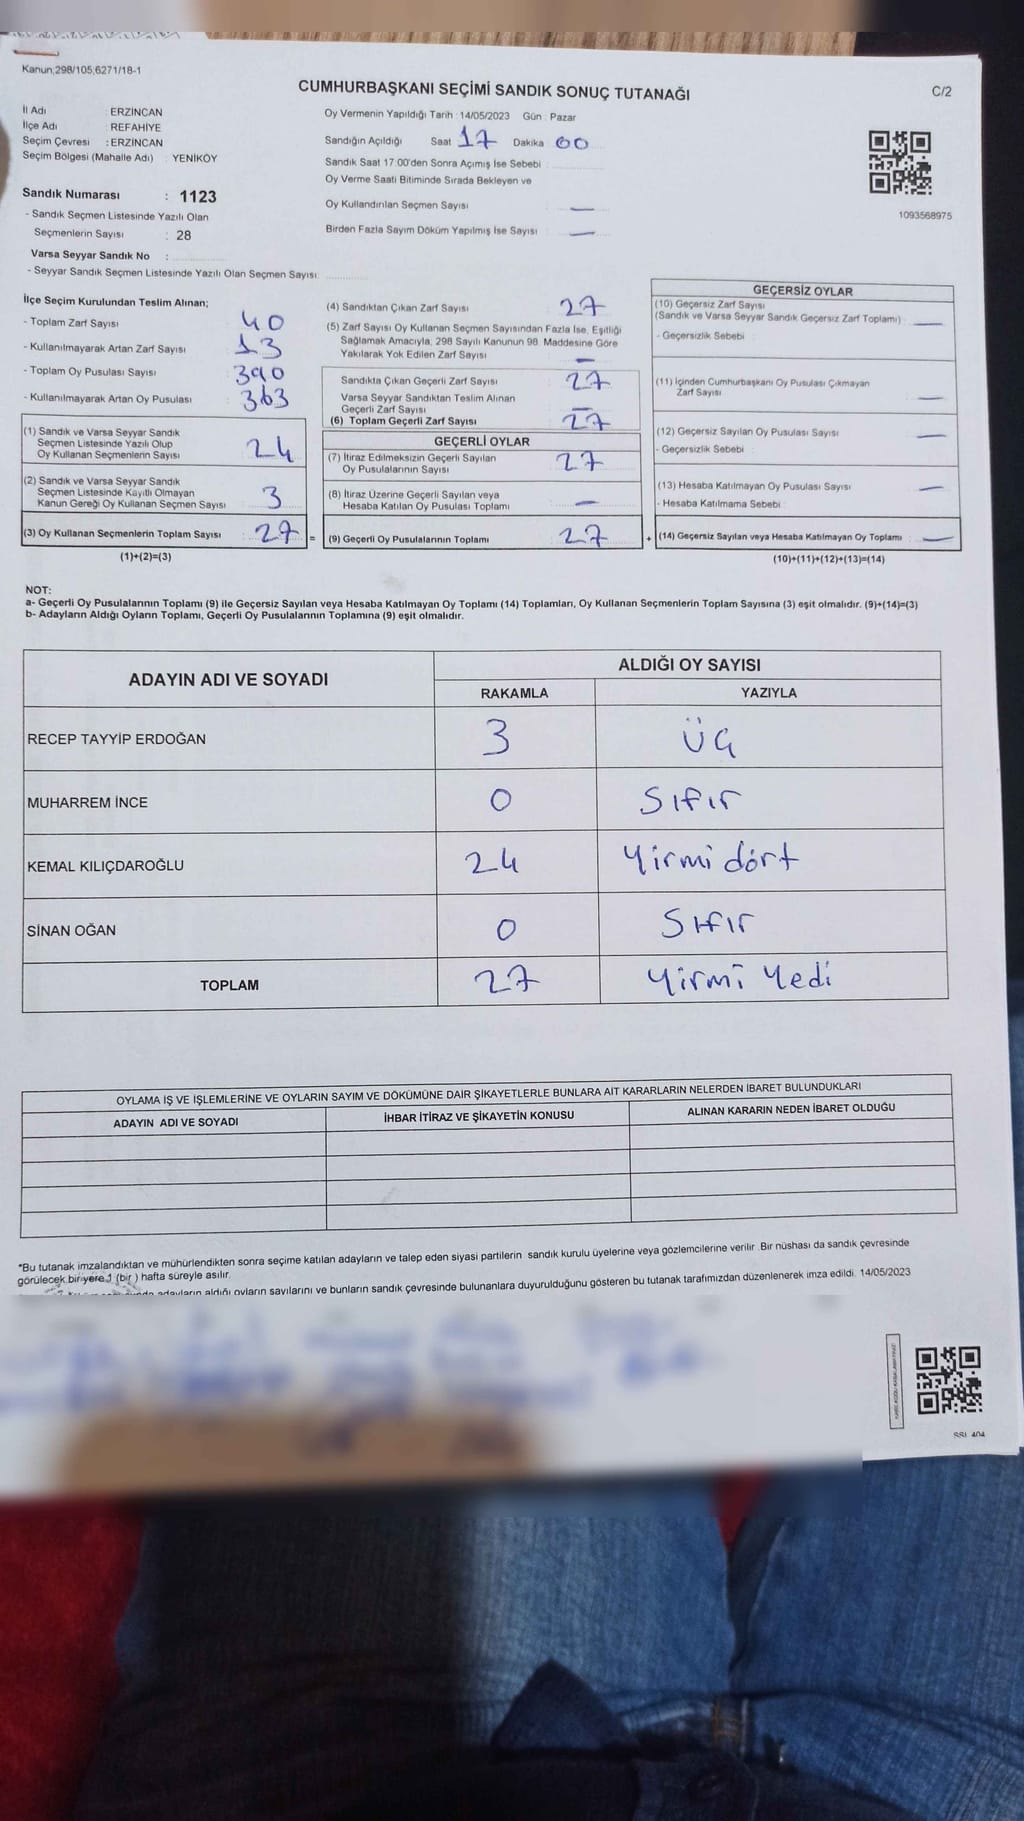 Kanun;298/105;6271/18-1
CUMHURBAŞKANI SEÇİMİ SANDIK SONUÇ TUTANAĞI
C/2
İl Adı : ERZİNCAN
İlçe Adı : REFAHİYE
Seçim Çevresi : ERZİNCAN
Seçim Bölgesi (Mahalle Adı) : YENİKÖY
Sandık Numarası : 1123
- Sandık Seçmen Listesinde Yazılı Olan
Seçmenlerin Sayısı : 28
Varsa Seyyar Sandık No :
- Seyyar Sandık Seçmen Listesinde Yazılı Olan Seçmen Sayısı:
Oy Vermenin Yapıldığı Tarih : 14/05/2023 Gün : Pazar
Sandığın Açıldığı Saat 17 Dakika 00
Sandık Saat 17:00'den Sonra Açımış İse Sebebi :
Oy Verme Saati Bitiminde Sırada Bekleyen ve
Oy Kullandırılan Seçmen Sayısı : —
Birden Fazla Sayım Döküm Yapılmış İse Sayısı : —
1093568975
İlçe Seçim Kurulundan Teslim Alınan;
- Toplam Zarf Sayısı 40
- Kullanılmayarak Artan Zarf Sayısı 13
- Toplam Oy Pusulası Sayısı 390
- Kullanılmayarak Artan Oy Pusulası 363
(1) Sandık ve Varsa Seyyar Sandık
Seçmen Listesinde Yazılı Olup
Oy Kullanan Seçmenlerin Sayısı 24
(2) Sandık ve Varsa Seyyar Sandık
Seçmen Listesinde Kayıtlı Olmayan
Kanun Gereği Oy Kullanan Seçmen Sayısı 3
(3) Oy Kullanan Seçmenlerin Toplam Sayısı : 27 =
(1)+(2)=(3)
(4) Sandıktan Çıkan Zarf Sayısı 27
(5) Zarf Sayısı Oy Kullanan Seçmen Sayısından Fazla İse, Eşitliği
Sağlamak Amacıyla; 298 Sayılı Kanunun 98. Maddesine Göre
Yakılarak Yok Edilen Zarf Sayısı —
Sandıkta Çıkan Geçerli Zarf Sayısı 27
Varsa Seyyar Sandıktan Teslim Alınan
Geçerli Zarf Sayısı —
(6) Toplam Geçerli Zarf Sayısı 27
GEÇERLİ OYLAR
(7) İtiraz Edilmeksizin Geçerli Sayılan
Oy Pusulalarının Sayısı 27
(8) İtiraz Üzerine Geçerli Sayılan veya
Hesaba Katılan Oy Pusulası Toplamı —
(9) Geçerli Oy Pusulalarının Toplamı 27 +
GEÇERSİZ OYLAR
(10) Geçersiz Zarf Sayısı
(Sandık ve Varsa Seyyar Sandık Geçersiz Zarf Toplamı) : —
- Geçersizlik Sebebi :
(11) İçinden Cumhurbaşkanı Oy Pusulası Çıkmayan
Zarf Sayısı —
(12) Geçersiz Sayılan Oy Pusulası Sayısı : —
- Geçersizlik Sebebi :
(13) Hesaba Katılmayan Oy Pusulası Sayısı : —
- Hesaba Katılmama Sebebi :
(14) Geçersiz Sayılan veya Hesaba Katılmayan Oy Toplamı : —
(10)+(11)+(12)+(13)=(14)
NOT:
a- Geçerli Oy Pusulalarının Toplamı (9) ile Geçersiz Sayılan veya Hesaba Katılmayan Oy Toplamı (14) Toplamları, Oy Kullanan Seçmenlerin Toplam Sayısına (3) eşit olmalıdır. (9)+(14)=(3)
b- Adayların Aldığı Oyların Toplamı, Geçerli Oy Pusulalarının Toplamına (9) eşit olmalıdır.
ADAYIN ADI VE SOYADI
ALDIĞI OY SAYISI
RAKAMLA YAZIYLA
RECEP TAYYİP ERDOĞAN 3 Üç
MUHARREM İNCE 0 Sıfır
KEMAL KILIÇDAROĞLU 24 Yirmi dört
SİNAN OĞAN 0 Sıfır
TOPLAM 27 Yirmi Yedi
OYLAMA İŞ VE İŞLEMLERİNE VE OYLARIN SAYIM VE DÖKÜMÜNE DAİR ŞİKAYETLERLE BUNLARA AİT KARARLARIN NELERDEN İBARET BULUNDUKLARI
ADAYIN ADI VE SOYADI İHBAR İTİRAZ VE ŞİKAYETİN KONUSU ALINAN KARARIN NEDEN İBARET OLDUĞU
*Bu tutanak imzalandıktan ve mühürlendikten sonra seçime katılan adayların ve talep eden siyasi partilerin sandık kurulu üyelerine veya gözlemcilerine verilir. Bir nüshası da sandık çevresinde
görülecek bir yere 1 (bir ) hafta süreyle asılır.
adayların aldığı oyların sayılarını ve bunların sandık çevresinde bulunanlara duyurulduğunu gösteren bu tutanak tarafımızdan düzenlenerek imza edildi. 14/05/2023